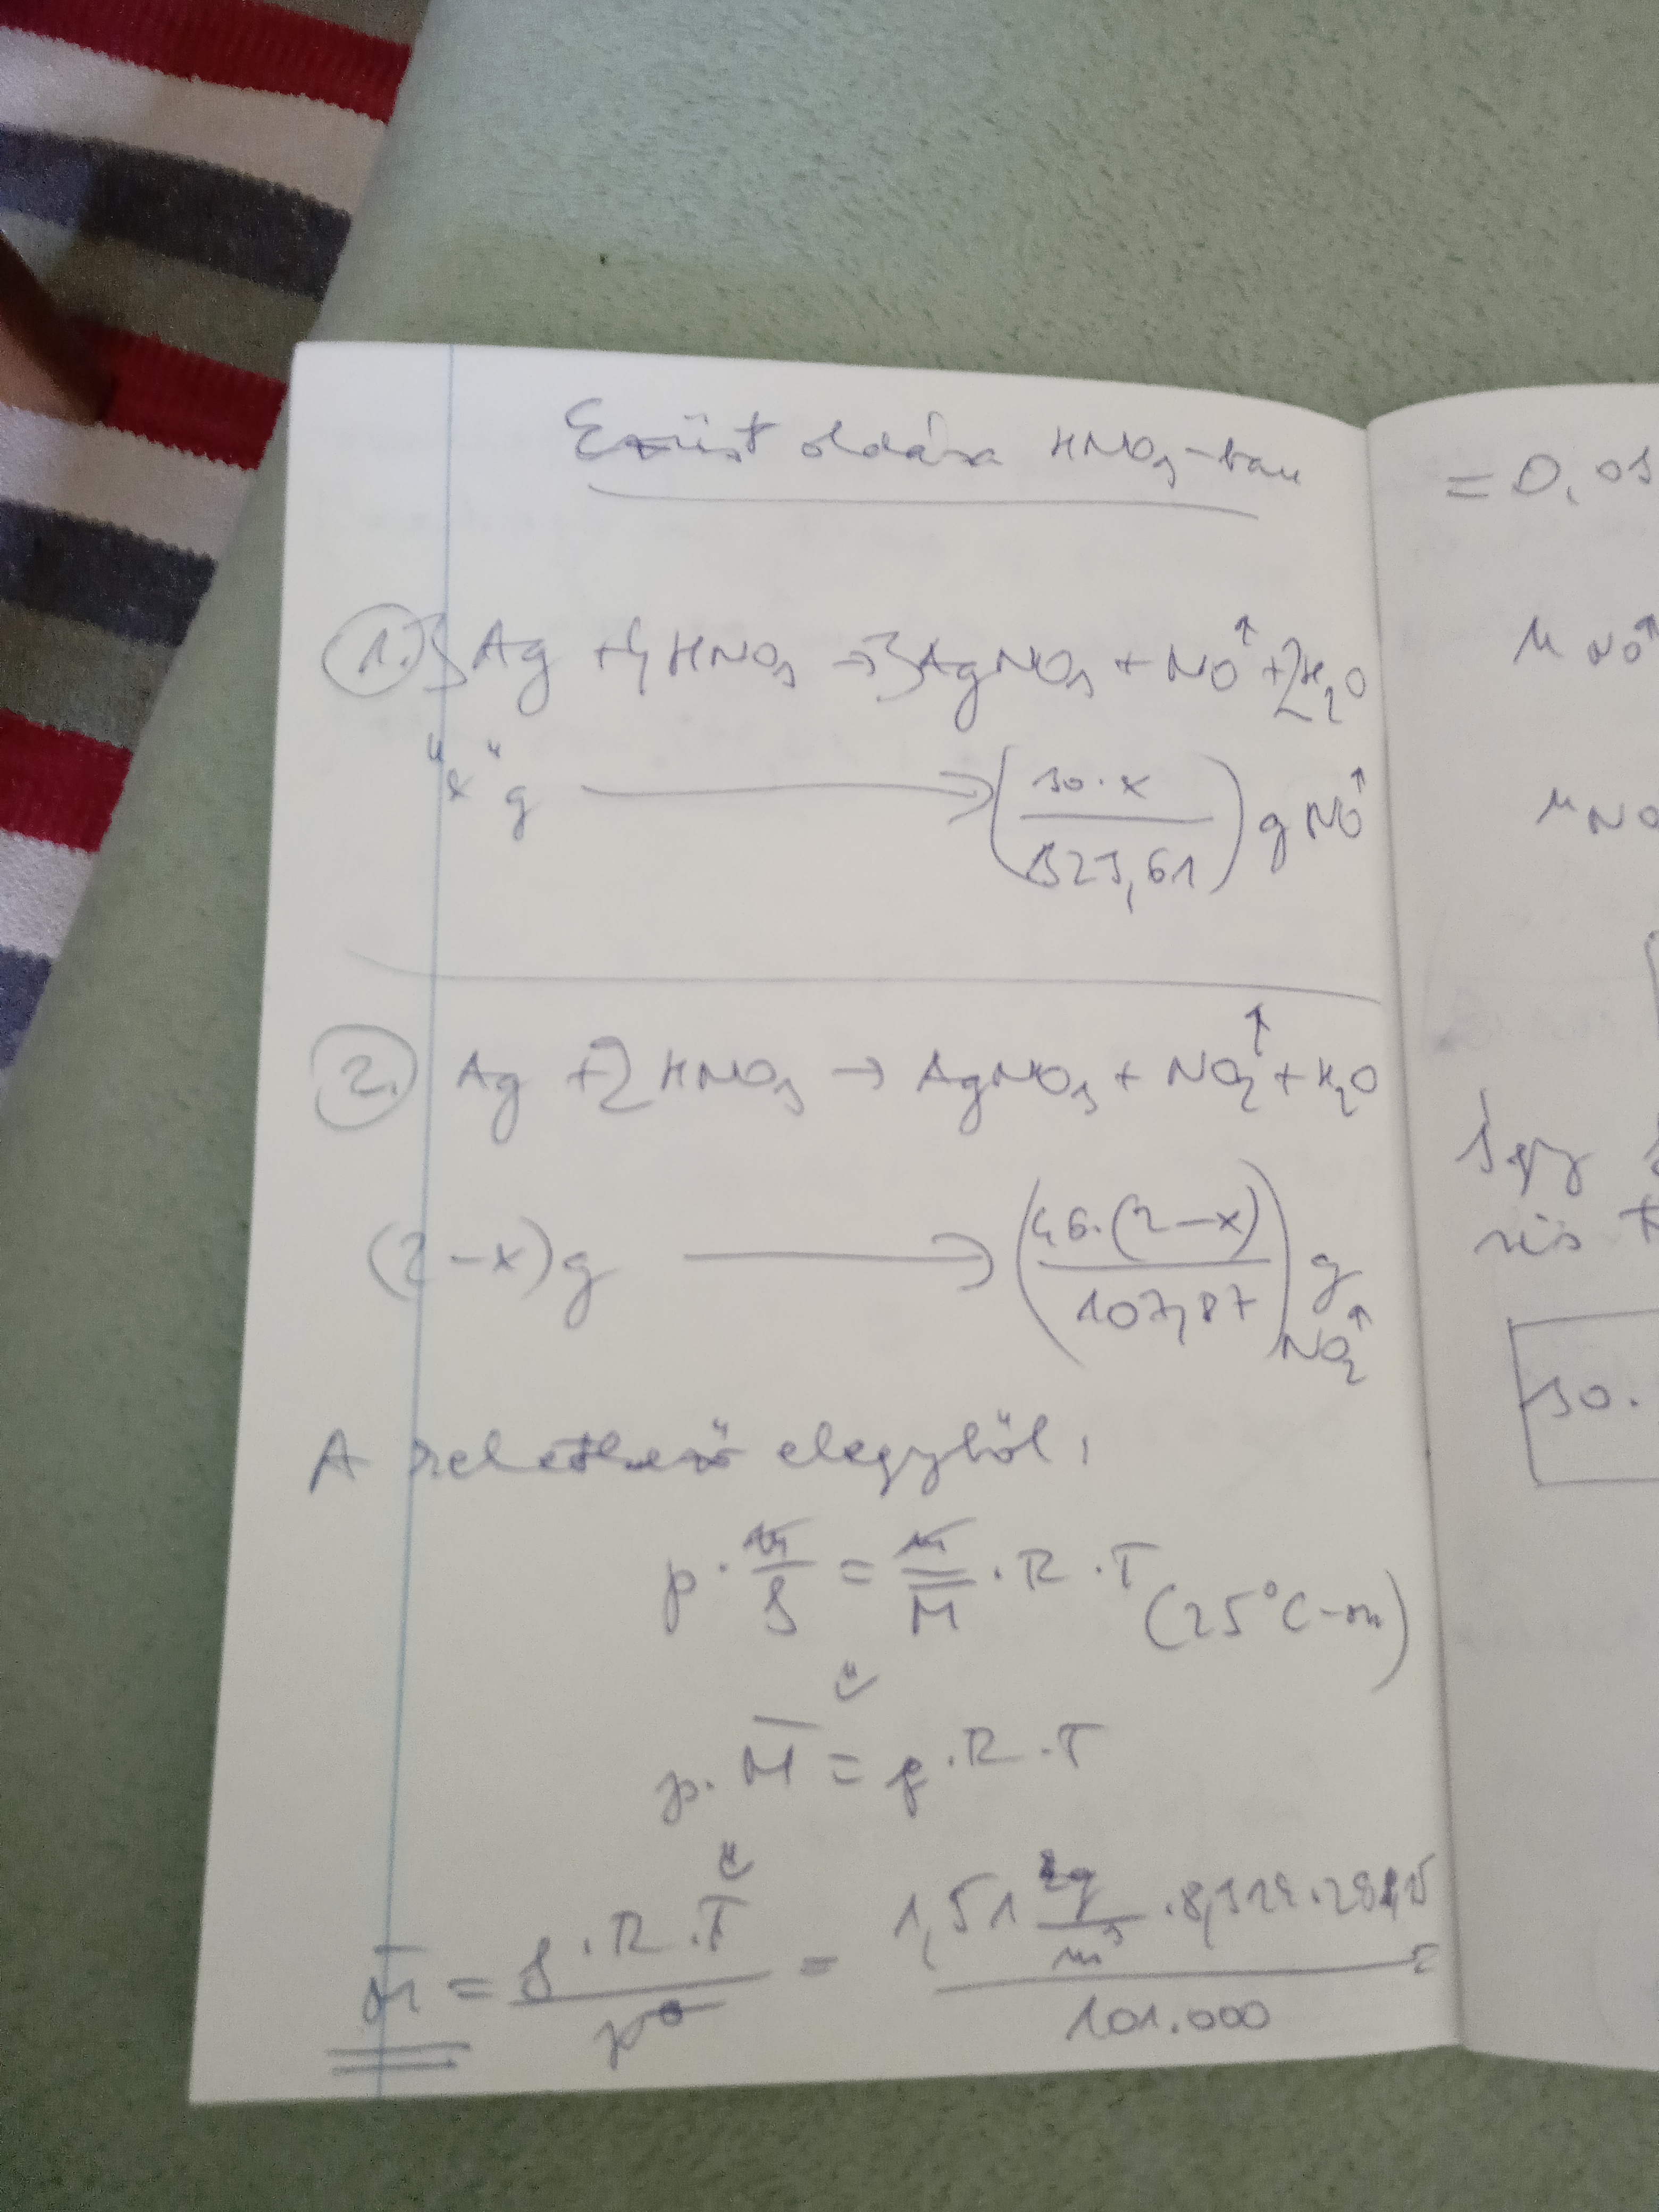 Ezüst oldása HNO₃-ban
1. 3Ag + 4HNO₃ → 3AgNO₃ + NO↑ + 2H₂O
"x" g → (30·x / 323,61) g NO↑
2. Ag + 2HNO₃ → AgNO₃ + NO₂↑ + H₂O
(2-x)g → (46·(2-x) / 107,87) g NO₂↑
A keletkező elegyből,
p · m/ρ = m/M̄ · R · T (25°C-on)
p · M̄ = ρ · R · T
M̄ = ρ · R · T / p = 1,51 kg/m³ · 8,314 · 298,15 / 101.000 =
= 0,03
NO↑
Így
30.